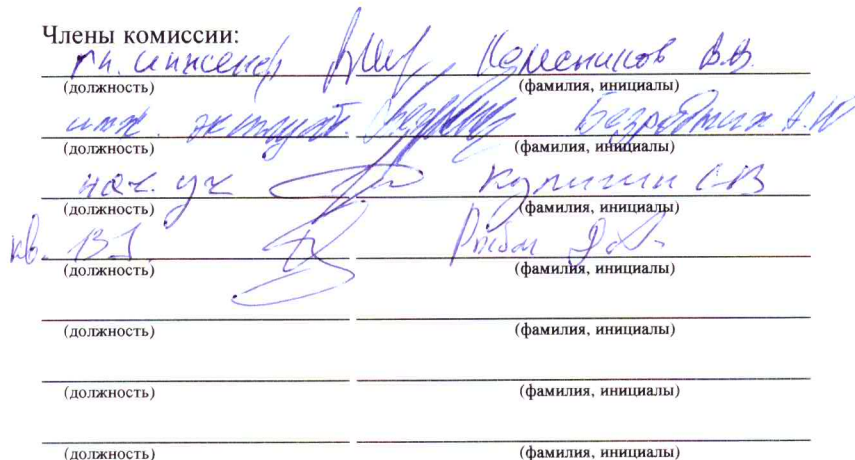 Члены комиссии:
гл. инженер Колесников В.В.
(должность) (фамилия, инициалы)
инж. эксплуат. Безработних А.Ю
(должность) (фамилия, инициалы)
нач. уч С.В
(должность) (фамилия, инициалы)
кв. 131.
(должность) (фамилия, инициалы)
(должность) (фамилия, инициалы)
(должность) (фамилия, инициалы)
(должность) (фамилия, инициалы)